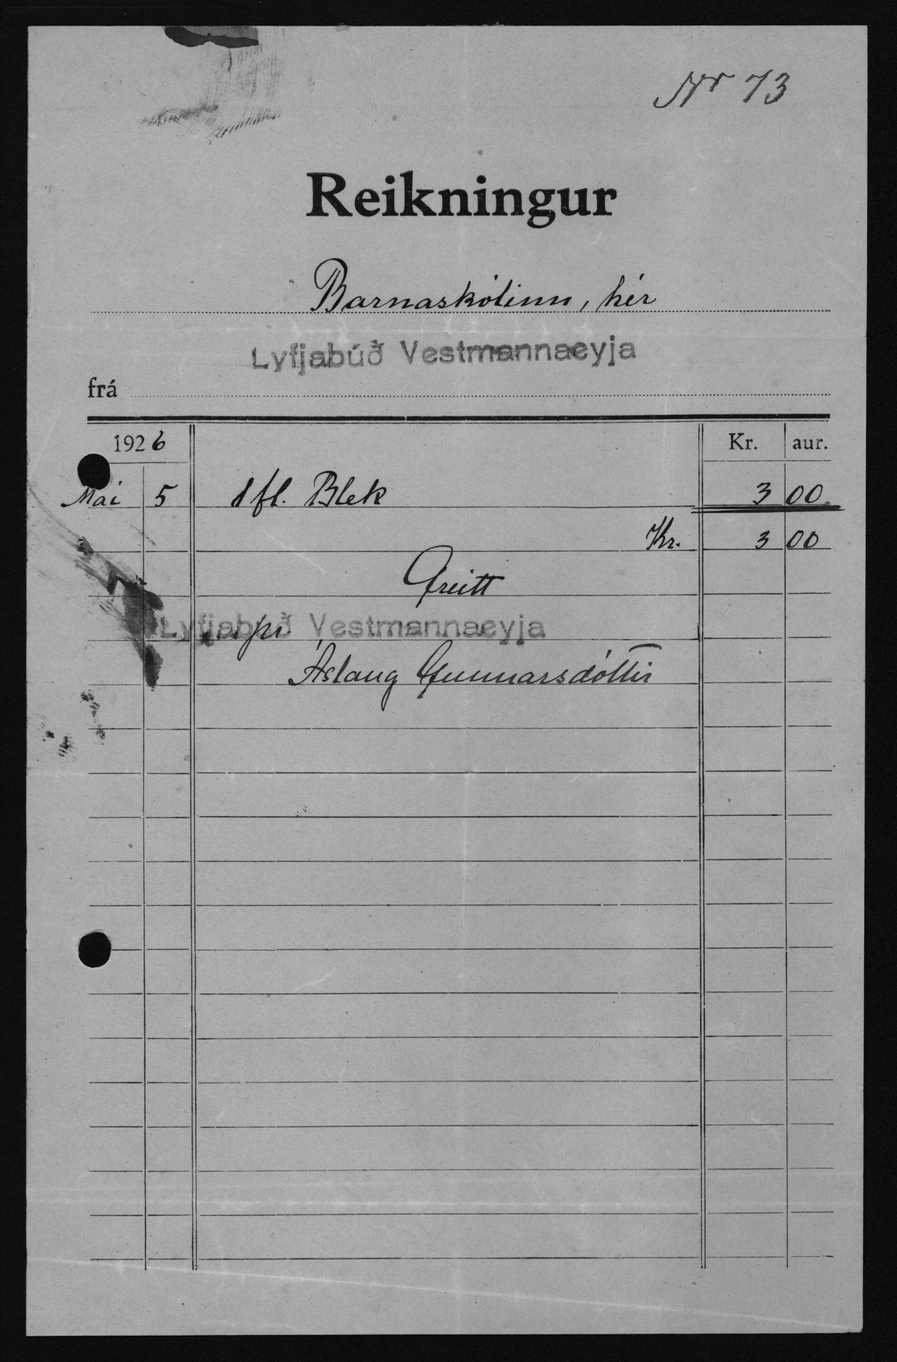 Nr 73
Reikningur
Barnaskólinn, hér
Lyfjabúð Vestmannaeyja
frá
1926 Kr. aur.
Mai 5 1 fl. Blek 3 00
Kr. 3 00
Greitt
Lyfjabúð Vestmannaeyja
pr
Áslaug Gunnarsdóttir